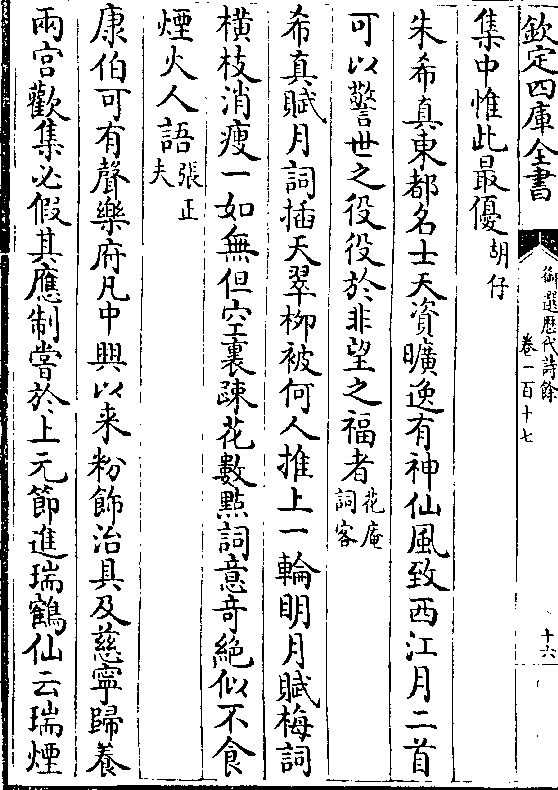 欽定四庫全書
御選歷代詩餘
卷一百十七
十六
集中惟此最優胡仔
朱希真東都名士天資曠逸有神仙風致西江月二首
可以警世之役役於非望之福者花庵詞客
希真賦月詞插天翠柳被何人推上一輪明月賦梅詞
橫枝消瘦一如無但空裏疎花數點詞意奇絕似不食
煙火人語張正夫
康伯可有聲樂府凡中興以来粉飾治具及慈寧歸養
兩宮歡集必假其應制嘗於上元節進瑞鶴仙云瑞煙